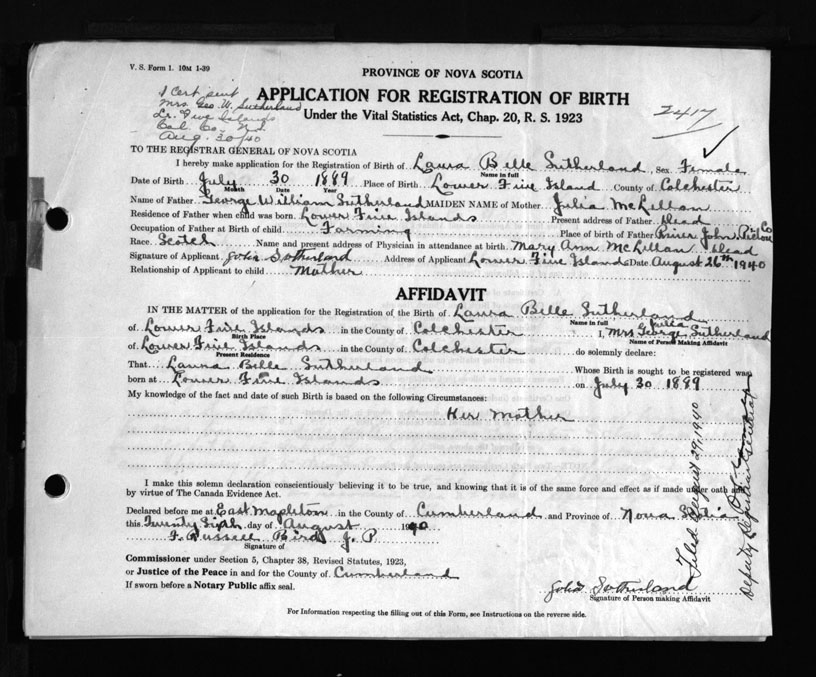 V. S. Form 1. 10M 1-39
PROVINCE OF NOVA SCOTIA
1 Cert sent
Mrs. Geo. W. Sutherland
Lr. Five Islands
Col. Co. N.S.
Aug. 30/40
APPLICATION FOR REGISTRATION OF BIRTH
2417
Under the Vital Statistics Act, Chap. 20, R. S. 1923
TO THE REGISTRAR GENERAL OF NOVA SCOTIA
I hereby make application for the Registration of Birth of Laura Belle Sutherland, Sex. Female
Name in full
Date of Birth July 30 1889 Place of Birth Lower Five Island County of Colchester
Month Date Year
Name of Father George William Sutherland MAIDEN NAME of Mother Julia McLellan
Residence of Father when child was born. Lower Five Islands Present address of Father Dead
Occupation of Father at Birth of child. Farming Place of birth of Father River John, Pictou Co
Race. Scotch Name and present address of Physician in attendance at birth. Mary Ann McLellan dead
Signature of Applicant Sutherland Address of Applicant Lower Five Islands Date August 26th 1940
Relationship of Applicant to child Mother
AFFIDAVIT
IN THE MATTER of the application for the Registration of the Birth of Laura Belle Sutherland
Name in full
of Lower Five Islands in the County of Colchester I, Mrs Julia George Sutherland
Birth Place Name of Person Making Affidavit
of Lower Five Islands in the County of Colchester do solemnly declare:
Present Residence
That Laura Belle Sutherland Whose Birth is sought to be registered was
born at Lower Five Islands on July 30 1889
My knowledge of the fact and date of such Birth is based on the following Circumstances:
Her Mother
I make this solemn declaration conscientiously believing it to be true, and knowing that it is of the same force and effect as if made under oath and
by virtue of The Canada Evidence Act.
Declared before me at East Mapleton in the County of Cumberland and Province of Nova Scotia
this Twenty Sixth day of August 1940
F. Russell Bird J. P
Signature of
Commissioner under Section 5, Chapter 38, Revised Statutes, 1923,
or Justice of the Peace in and for the County of Cumberland
If sworn before a Notary Public affix seal.
Sutherland
Signature of Person making Affidavit
For Information respecting the filling out of this Form, see Instructions on the reverse side.
Filed August 29, 1940
Deputy Registrar General